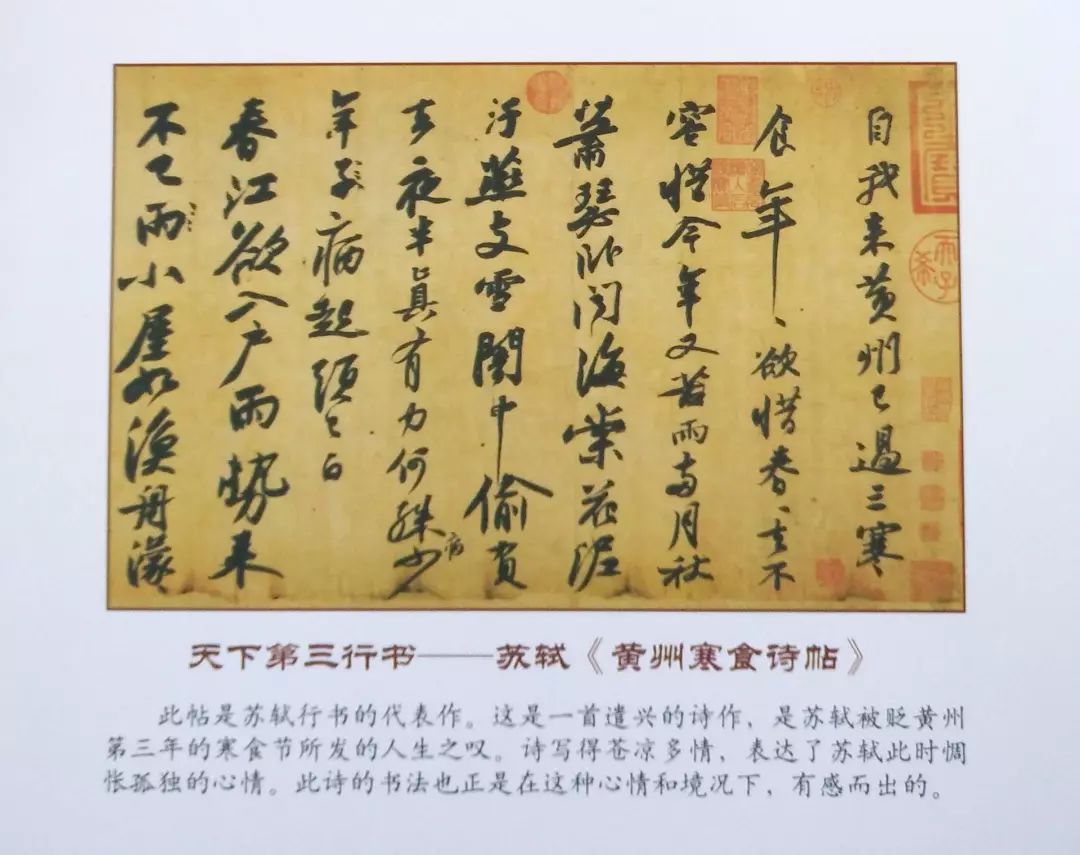 自我來黃州已過三寒
食年、欲惜春、去不
容惜今年又苦雨兩月秋
蕭瑟臥聞海棠花泥
汙燕支雪闇中偷負
去夜半真有力何殊少
病
年子病起須已白
春江欲入戶雨勢來
不已雨小屋如漁舟濛
天下第三行书——苏轼《黄州寒食诗帖》
此帖是苏轼行书的代表作。这是一首遣兴的诗作，是苏轼被贬黄州
第三年的寒食节所发的人生之叹。诗写得苍凉多情，表达了苏轼此时惆
怅孤独的心情。此诗的书法也正是在这种心情和境况下，有感而出的。